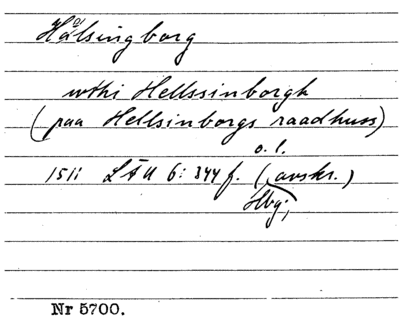 Hälsingborg
wthi Hellssinborgk
(paa Hellsinborgs raadhuss)
o. l.
1511 LÄU 6: 344 f. (avskr.)
Hbg;
Nr 5700.